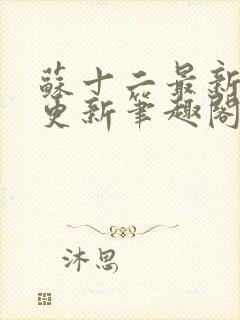 蘇十二最新
更新筆趣閣
沐思